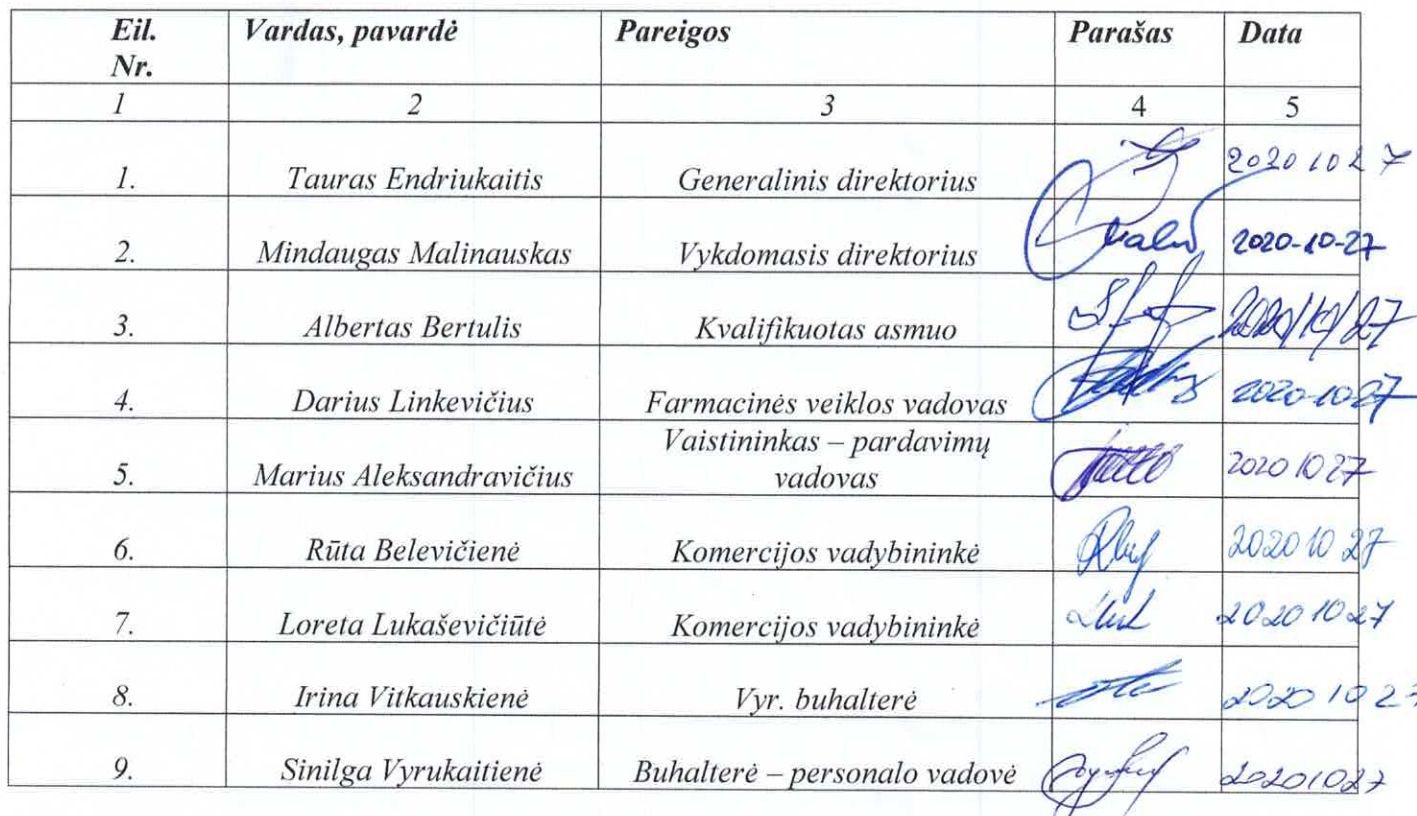 Eil. Nr. Vardas, pavardė Pareigos Parašas Data
1 2 3 4 5
1. Tauras Endriukaitis Generalinis direktorius 2020 10 27
2. Mindaugas Malinauskas Vykdomasis direktorius 2020-10-27
3. Albertas Bertulis Kvalifikuotas asmuo 2020/10/27
4. Darius Linkevičius Farmacinės veiklos vadovas 2020-10-27
5. Marius Aleksandravičius Vaistininkas – pardavimų vadovas 2020 10 27
6. Rūta Belevičienė Komercijos vadybininkė 2020 10 27
7. Loreta Lukaševičiūtė Komercijos vadybininkė 2020 10 27
8. Irina Vitkauskienė Vyr. buhalterė 2020 10 27
9. Sinilga Vyrukaitienė Buhalterė – personalo vadovė 20201027